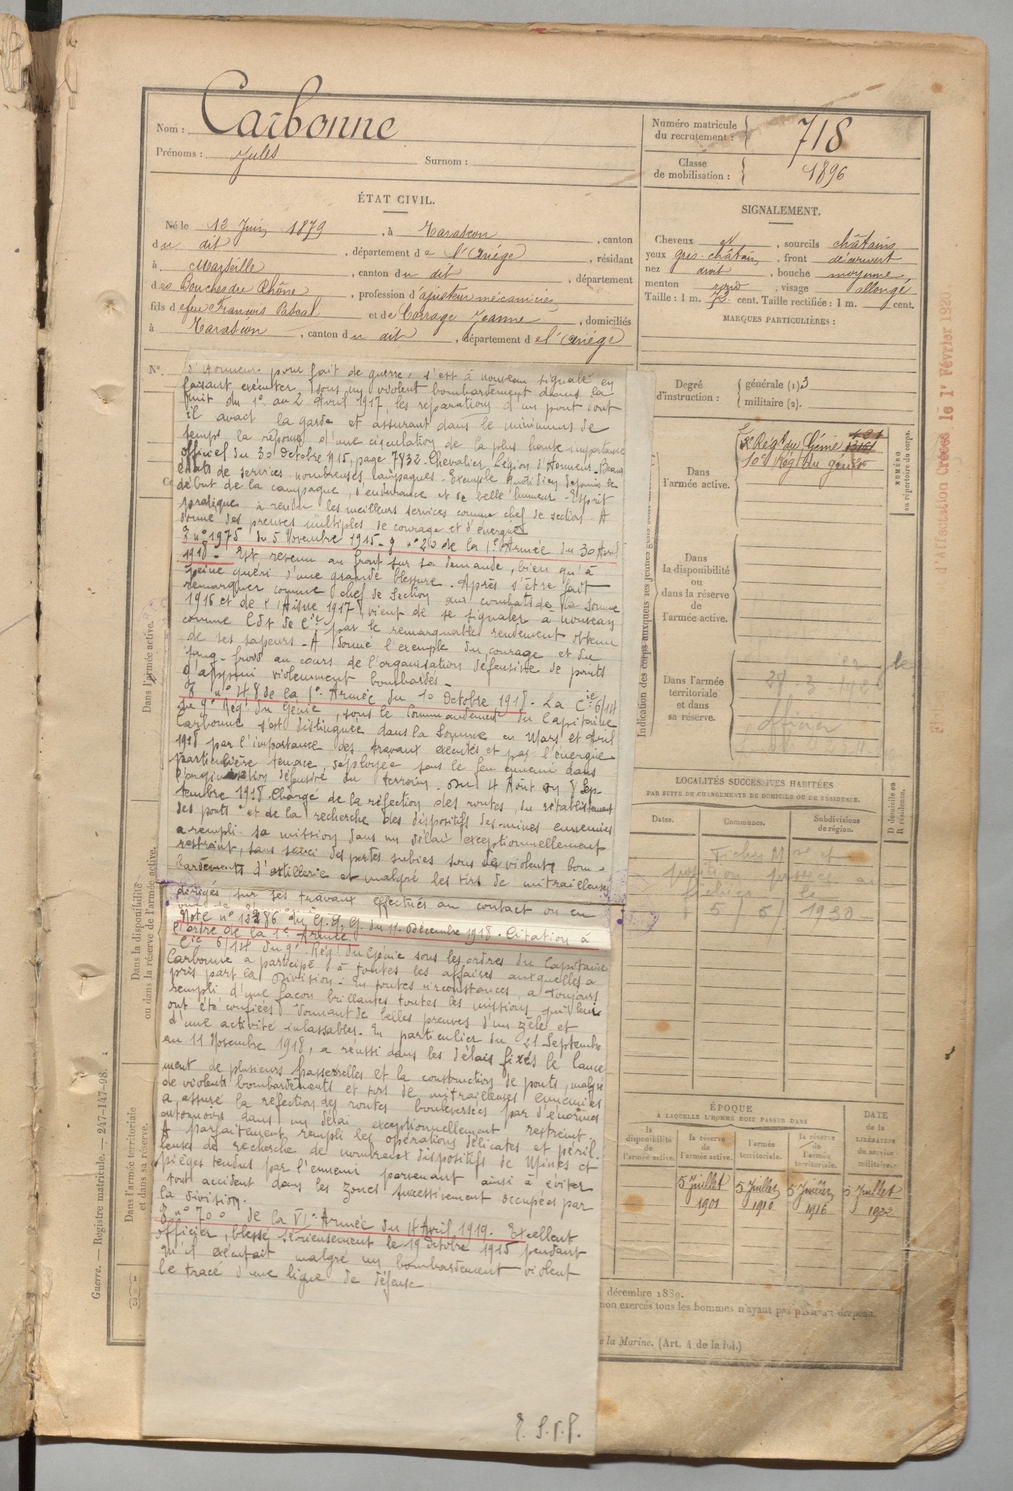 Nom : Carbonne
Prénoms : Jules Surnom :
Numéro matricule du recrutement : 718
Classe de mobilisation : 1896
ÉTAT CIVIL.
Né le 12 Juin 1879, à Tarascon, canton
du dit, département de l'Ariége, résidant
à Marseille, canton du dit, département
des Bouches du Rhône, profession d'ajusteur mécanicien
fils de feu François Pascal et de Carrage Jeanne, domiciliés
à Tarascon, canton du dit, département de l'Ariége
SIGNALEMENT.
Cheveux et, sourcils châtains
yeux gris-châtain, front découvert
nez droit, bouche moyenne,
menton rond, visage allongé
Taille : 1 m. 72 cent. Taille rectifiée : 1 m. cent.
MARQUES PARTICULIÈRES :
N°.
d'honneur pour fait de guerre, s'est à nouveau signalé en
faisant exécuter, sous un violent bombardement dans la
nuit du 1° au 2 Avril 1917, les réparations d'un pont dont
il avait la garde et assurant dans le minimum de
temps la reprise d'une circulation de la plus haute importance
officiel du 30 octobre 1915, page 7832. Chevalier Légion d'Honneur. Beaux
états de services. nombreuses campagnes. Exemple quotidien depuis le
début de la campagne, d'endurance et de belle humeur. Esprit
pratique, a rendu les meilleurs services comme chef de section. A
donné des preuves multiples de courage et d'énergie
3 n° 1975 du 5 Novembre 1915. g n° 20 de la 1e Armée du 30 Avril
1918. Est revenu au front sur sa demande, bien qu'à
peine guéri d'une grande blessure. Après s'être fait
remarquer comme chef de Section aux combats de la Somme
1916 et de l'Aisne 1917, vient de se signaler à nouveau
comme Cdt de Cie par le remarquable rendement obtenu
de ses sapeurs. A donné l'exemple du courage et du
sang froid au cours de l'organisation défensive de points
d'appui violemment bombardés.
3 n° 148 de la 1e Armée du 10 Octobre 1918. La Cie 6/1st
du 9e Rég. du Génie, sous le commandement du Capitaine
Carbonne s'est distinguée dans la Somme en Mars et Avril
1918 par l'importance des travaux exécutés et par l'énergie
particulière tenace, déployée sous le feu ennemi dans
l'organisation défensive du terrain. Du 4 Août au 8 Sep-
tembre 1918. Chargé de la réfection des routes, du rétablissement
des ponts et de la recherche des dispositifs de mines ennemies
a rempli sa mission dans un délai exceptionnellement
restreint, sans souci des pertes subies sous de violents bom-
bardements d'artillerie et malgré les tirs de mitrailleuses
dirigés sur ses travaux effectués au contact ou en
Note n° 13286 du G.Q.G. du 11 décembre 1918. Citation à
l'ordre de la 1e Armée.
Cie 6/1st du 9e Rég. du Génie sous les ordres du Capitaine
Carbonne a participé à toutes les affaires auxquelles a
pris part la Division. En toutes circonstances, a toujours
rempli d'une façon brillante toutes les missions qui leur
ont été confiées donnant de belles preuves d'un zèle et
d'une activité inlassables. En particulier du 21 Septembre
au 11 Novembre 1918, a réussi dans les délais fixés le lance
ment de plusieurs passerelles et la construction de ponts, malgré
de violents bombardements et tirs de mitrailleuses ennemies
a assuré la réfection des routes bouleversées par d'énormes
entonnoirs dans un délai exceptionnellement restreint.
A parfaitement rempli les opérations délicates et péril-
leuses de recherche de nombreux dispositifs de Mines et
pièges tendus par l'ennemi parvenant ainsi à éviter
tout accident dans les zones successivement occupées par
la division.
3 n° 700 de la VIe Armée du 4 Avril 1919. Excellent
officier, blessé sérieusement le 19 octobre 1915 pendant
qu'il exécutait malgré un bombardement violent
le tracé d'une ligne de défense.
T. S.V.P.
Degré d'instruction : générale (1) 3
militaire (2).
Dans l'armée active.
Rég. du Génie
10e Rég. du génie
NUMÉRO au répertoire du corps.
Dans la disponibilité ou dans la réserve de l'armée active.
Dans l'armée territoriale et dans sa réserve.
officier
Indication des corps auxquels les jeunes gens
LOCALITÉS SUCCESSIVES HABITÉES
PAR SUITE DE CHANGEMENTS DE DOMICILE OU DE RÉSIDENCE.
Dates. Communes. Subdivisions de région. D domicile ou R résidence.
5 / 6 / 1930
ÉPOQUE
À LAQUELLE L'HOMME DOIT PASSER DANS
DATE DE LA LIBÉRATION du service militaire.
la disponibilité de l'armée active. la réserve de l'armée active. l'armée territoriale. la réserve de l'armée territoriale.
5 Juillet 1901 5 Juillet 1910 5 Juillet 1916 5 Juillet 1922
décembre 1889.
non exercés tous les hommes n'ayant pas
de la Marine. (Art. 4 de la loi.)
Dans l'armée active.
Dans la disponibilité ou dans la réserve de l'armée active.
Dans l'armée territoriale et dans sa réserve.
Guerre. — Registre matricule. — 247-147-98.
d'Affectation Créées le 1er Février 1920.